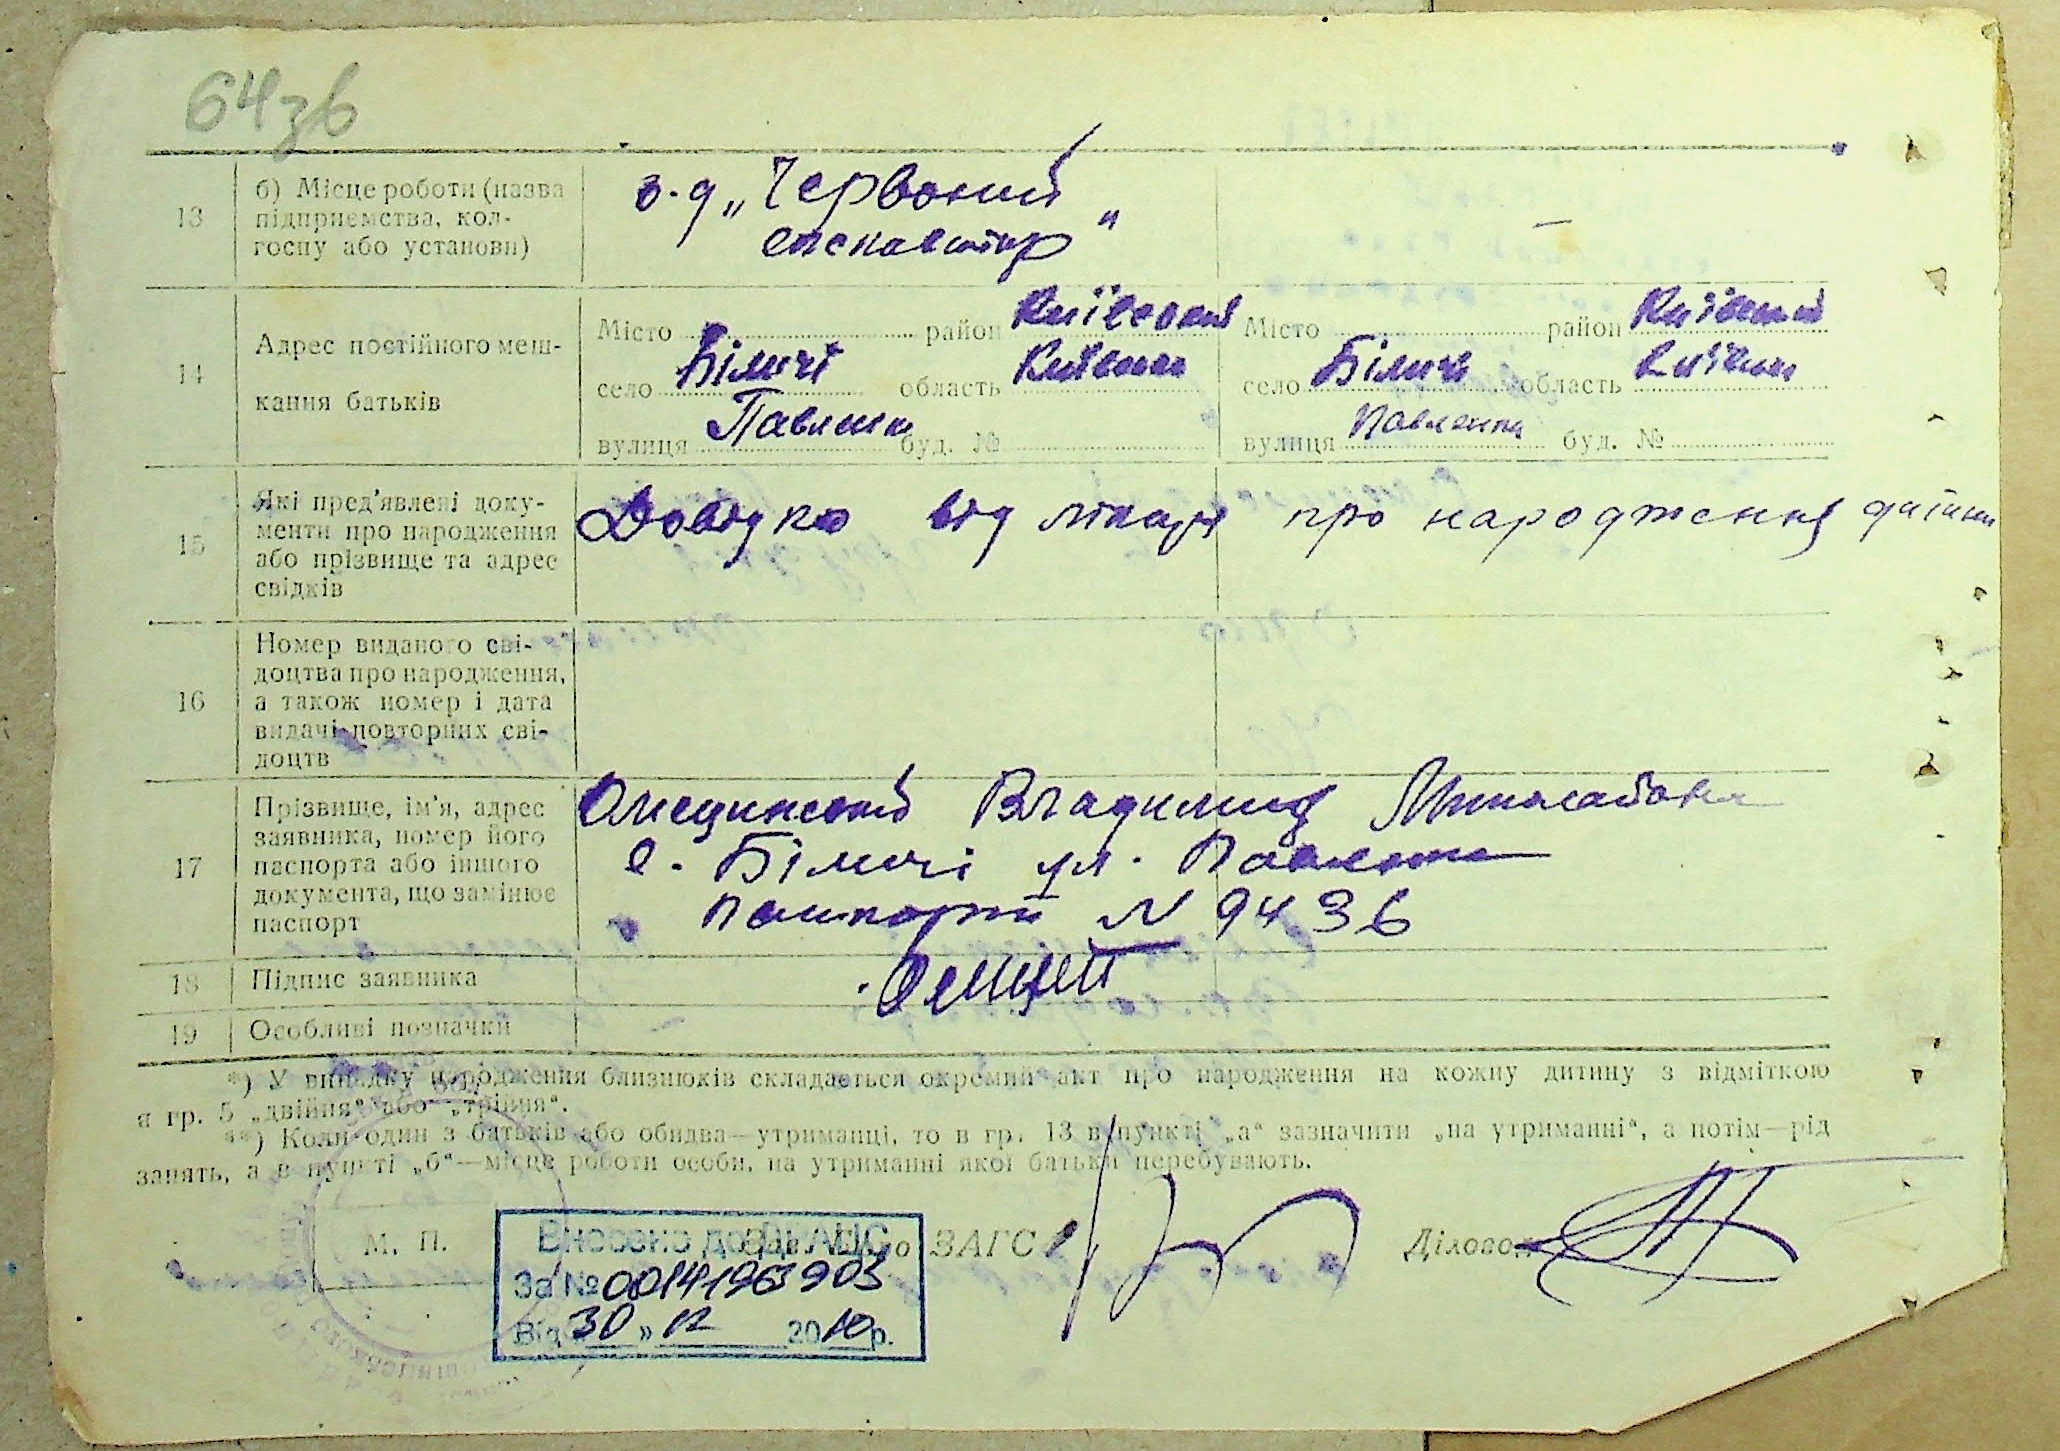 64зв
13
б) Місце роботи (назва
підприємства, кол-
госпу або установи)
з-д „Червоний
екскаватор"
—
14
Адрес постійного меш-
кання батьків
Місто район Київський
село Біличі область Київська
вулиця Павленка буд. №
Місто район Київський
село Біличі область Київськ
вулиця Павленка буд. №
15
Які пред'явлені доку-
менти про народження
або прізвище та адрес
свідків
Довідка від лікаря про народження дитини
16
Номер виданого сві-
доцтва про народження,
а також номер і дата
видачі повторних сві-
доцтв
17
Прізвище, ім'я, адрес
заявника, номер його
паспорта або іншого
документа, що замінює
паспорт
Владимир
с. Біличі ул. Павленка
паспорт N 9436
18
Підпис заявника
19
Особливі позначки
—
*) У випадку народження близнюків складається окремий акт про народження на кожну дитину з відміткою
в гр. 5 „двійня" або „трійня".
**) Коли один з батьків або обидва—утриманці, то в гр. 13 в пункті „а" зазначити „на утриманні", а потім—рід
занять, а в пункті „б"—місце роботи особи, на утриманні якої батьки перебувають.
М. П.
Зав. Бюро ЗАГС
Діловод
Внесено до ДРАЦС
За № 00141963903
Від „30" 12 2010р.